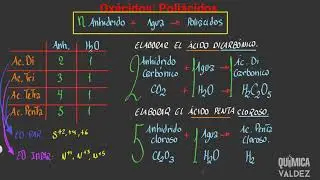 Oxácidos: Poliácidos
n Anhídrido + Agua → Poliácidos
Anh. H₂O
Ac. Di 2 1
Ac. Tri 3 1
Ac. Tetra 4 1
Ac. Penta 5 1
ELABORAR EL ÁCIDO DICARBÓNICO.
2 Anhídrido Carbónico + 1 Agua → Ac. Di Carbónico
CO₂ + H₂O → H₂C₂O₅
ELABORAR EL ÁCIDO PENTA CLOROSO.
5 Anhídrido cloroso + 1 Agua → Ac. Penta cloroso.
Cl₂O₃ H₂O H₂
E.O. PAR: S⁺², +4, +6
E.O IMPAR: N⁺¹, N⁺³, N⁺⁵
QUÍMICA
VALDEZ